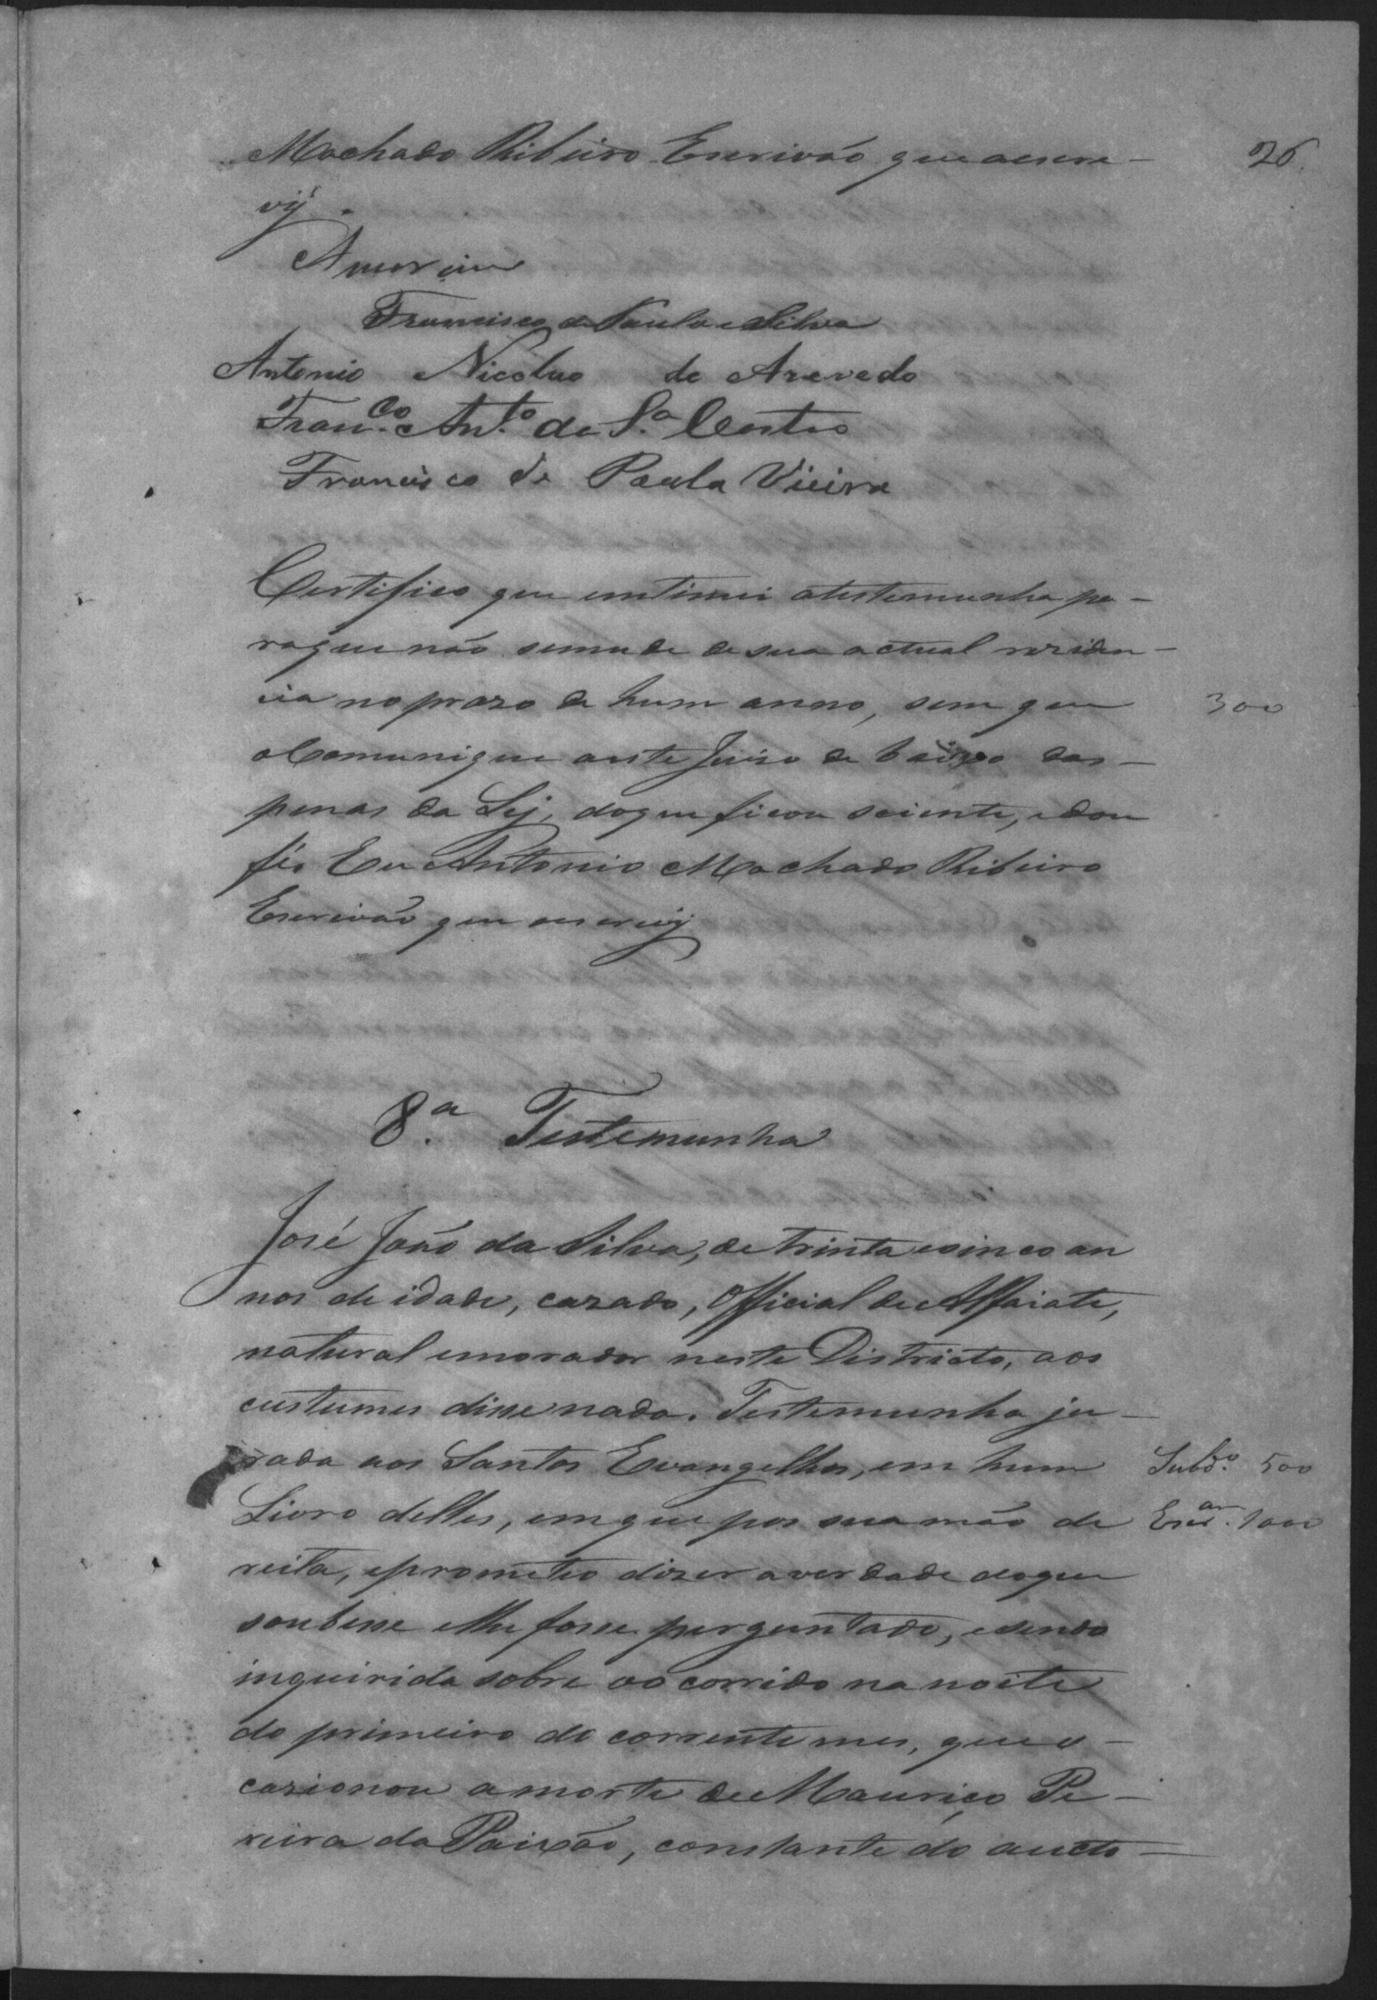 Machado Ribeiro Escrivão que aescre-
26.
vÿ.
Amorim
Francisco de Paula e Silva
Antonio Nicolao de Azevedo
Fran.co Ant.o de S.a Castro
Francisco de Paula Vieira
Certifico que intimei atestemunha pa-
raque não semude desua actual reziden-
cia noprazo de hum anno, sem que
300
o Comunique aeste Juizo de baixo das
penas da Lej, doque ficou sciente, edou
fé. Eu Antonio Machado Ribeiro
Escrivão que aescrevÿ
8.a Testemunha
José João da Silva, de trinta ecinco an
nos de idade, cazado, Official de Alfaiate,
natural emorador neste Districto, aos
custumes disse nada. Testemunha ju-
rada aos Santos Evangelhos, em hum
Subd.o 500
Livro delles, emque pos sua mão di
Escr.am 1000
reita, eprometeo dizer averdade doque
soubesse elhe fosse perguntado, esendo
inquirida sobre oocorrido na noite
do primeiro do corrente mes, que o-
cazionou amorte de Mauriço Pe-
reira da Paixão, constante do aucto